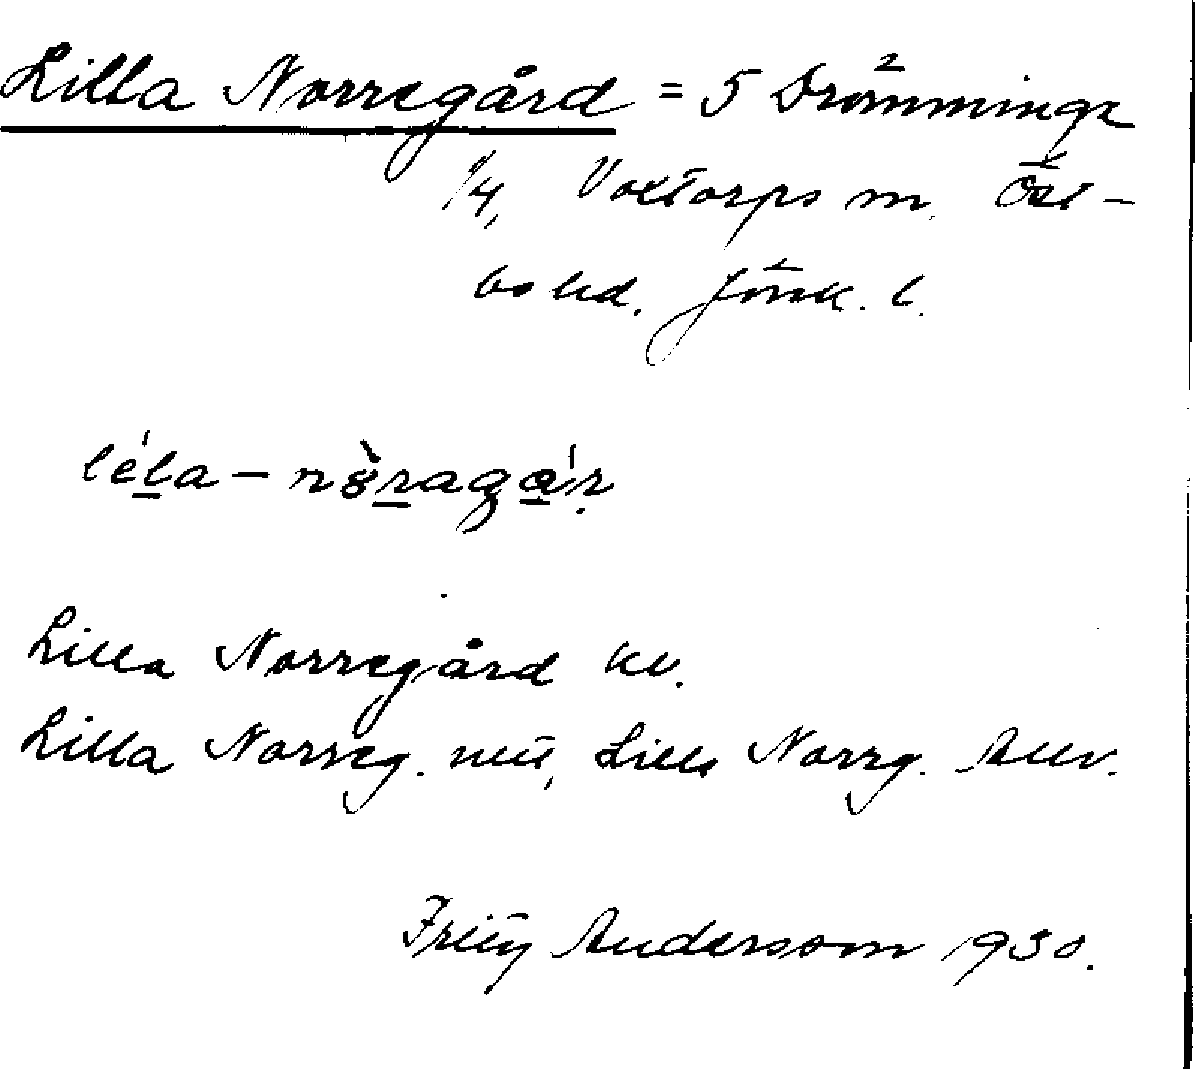 Lilla Norregård = 5 Drömminge
1/4, Voxtorps sn. Öst-
bo hd. Jönk. l.
léla - nòragár
Lilla Norregård kv.
Lilla Norreg. mtl, Lilla Norrg. Allv.
Fritz Andersson 1930.